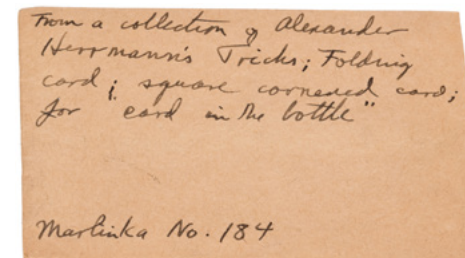 From a collection of Alexander
Herrmann's Tricks; Folding
card; square cornered card;
for "card in the bottle"
Martinka No. 184